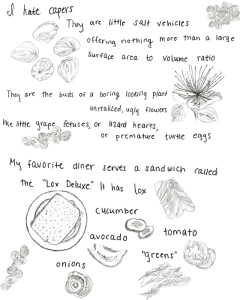 I hate capers
They are little salt vehicles
offering nothing more than a large
surface area to volume ratio
They are the buds of a boring looking plant
unrealized, ugly flowers
like little grape fetuses, or lizard hearts,
or premature turtle eggs.
My favorite diner serves a sandwich called
the "Lox Deluxe." It has lox
cucumber
avocado
tomato
"greens"
onions